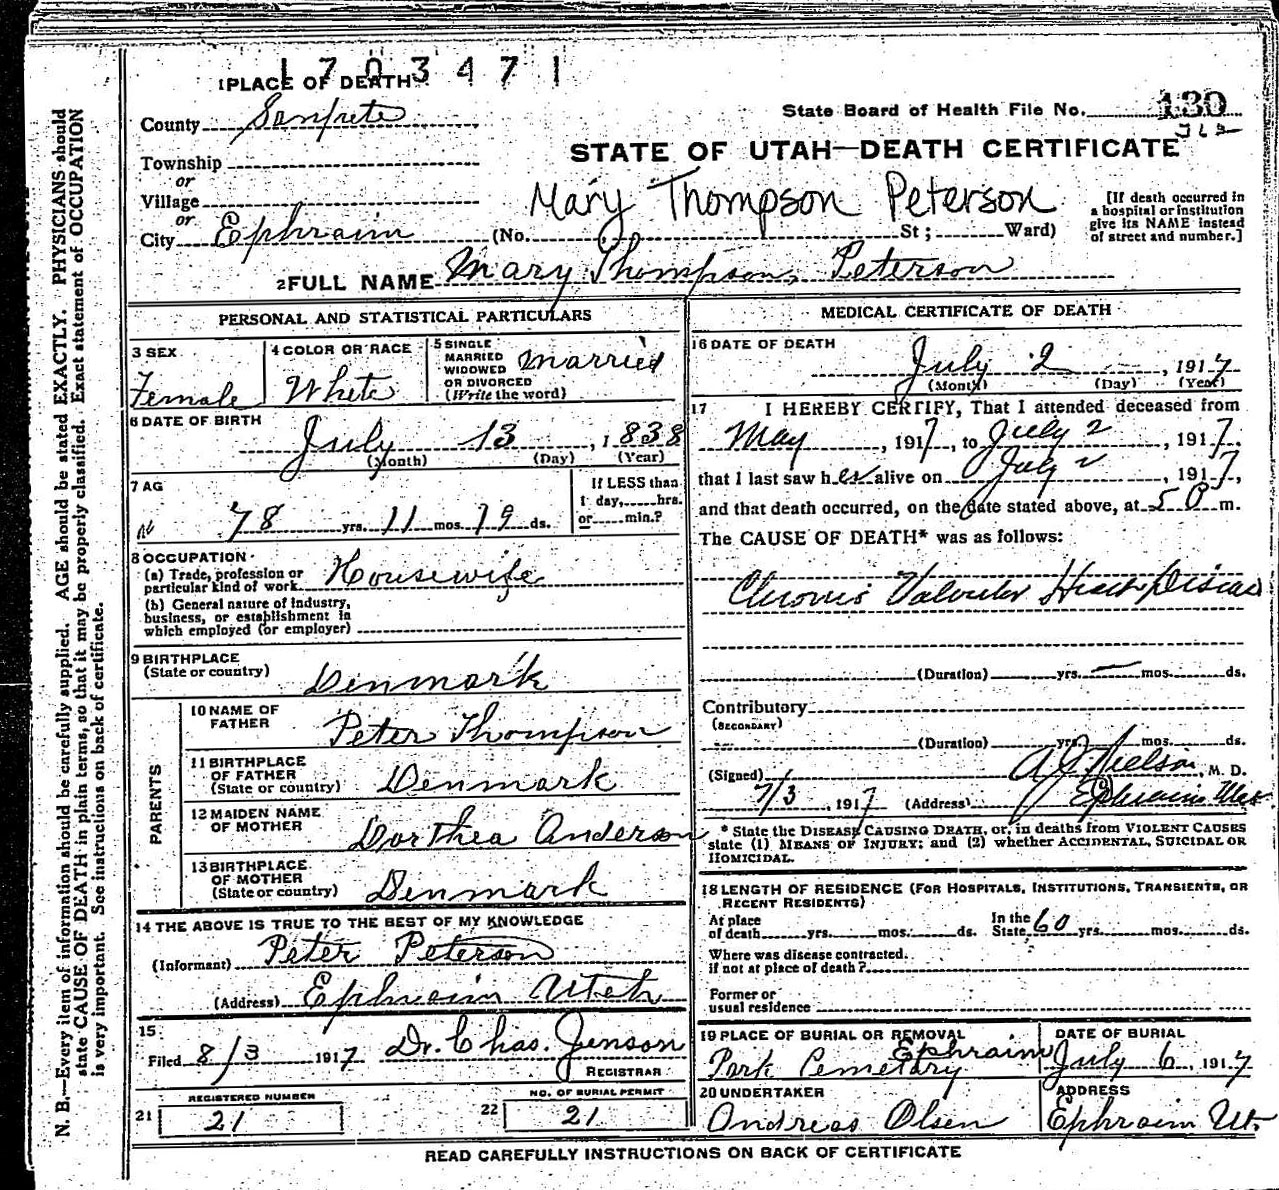 1703471
1 PLACE OF DEATH
County Sanpete
State Board of Health File No. 130
Township
or
Village
or
City Ephraim
STATE OF UTAH—DEATH CERTIFICATE
Mary Thompson Peterson
(No. St; Ward)
[If death occurred in
a hospital or institution
give its NAME instead
of street and number.]
2 FULL NAME Mary Thompson Peterson
PERSONAL AND STATISTICAL PARTICULARS
3 SEX
Female
4 COLOR OR RACE
White
5 SINGLE
MARRIED
WIDOWED
OR DIVORCED
(Write the word)
Married
6 DATE OF BIRTH
July 13, 1838
(Month) (Day) (Year)
7 AG
78 yrs. 11 mos. 19 ds.
If LESS than
1 day, hrs.
or min.?
8 OCCUPATION
(a) Trade, profession or
particular kind of work Housewife
(b) General nature of industry,
business, or establishment in
which employed (or employer)
9 BIRTHPLACE
(State or country) Denmark
PARENTS
10 NAME OF
FATHER Peter Thompson
11 BIRTHPLACE
OF FATHER
(State or country) Denmark
12 MAIDEN NAME
OF MOTHER Dorthea Anderson
13 BIRTHPLACE
OF MOTHER
(State or country) Denmark
14 THE ABOVE IS TRUE TO THE BEST OF MY KNOWLEDGE
(Informant) Peter Peterson
(Address) Ephraim Utah
15
Filed 8/3 1917 Dr. Chas. Jenson
REGISTRAR
21 REGISTERED NUMBER
21
22 NO. OF BURIAL PERMIT
21
MEDICAL CERTIFICATE OF DEATH
16 DATE OF DEATH
July 2, 1917
(Month) (Day) (Year)
17 I HEREBY CERTIFY, That I attended deceased from
May, 1917, to July 2, 1917,
that I last saw her alive on July 2, 1917,
and that death occurred, on the date stated above, at 5 P m.
The CAUSE OF DEATH* was as follows:
Chronic Valvular Heart Disease
(Duration) yrs. — mos. ds.
Contributory
(SECONDARY)
(Duration) yrs. mos. ds.
(Signed) A. J. Nielson, M. D.
7/3, 1917 (Address) Ephraim Utah
* State the DISEASE CAUSING DEATH, or, in deaths from VIOLENT CAUSES
state (1) MEANS OF INJURY; and (2) whether ACCIDENTAL, SUICIDAL OR
HOMICIDAL.
18 LENGTH OF RESIDENCE (FOR HOSPITALS, INSTITUTIONS, TRANSIENTS, OR
RECENT RESIDENTS)
At place
of death yrs. mos. ds.
In the
State 60 yrs. mos. ds.
Where was disease contracted.
if not at place of death?
Former or
usual residence
19 PLACE OF BURIAL OR REMOVAL
Ephraim
Park Cemetary
DATE OF BURIAL
July 6, 1917
20 UNDERTAKER
Andreas Olsen
ADDRESS
Ephraim Ut.
READ CAREFULLY INSTRUCTIONS ON BACK OF CERTIFICATE
N. B.—Every item of information should be carefully supplied. AGE should be stated EXACTLY. PHYSICIANS should
state CAUSE OF DEATH in plain terms, so that it may be properly classified. Exact statement of OCCUPATION
is very important. See instructions on back of certificate.